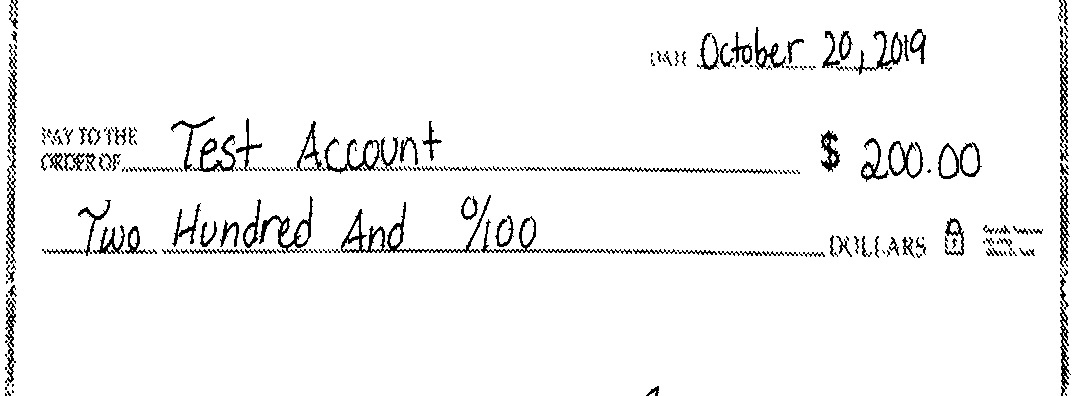 DATE October 20, 2019
PAY TO THE
ORDER OF Test Account $ 200.00
Two Hundred And 0/100 DOLLARS